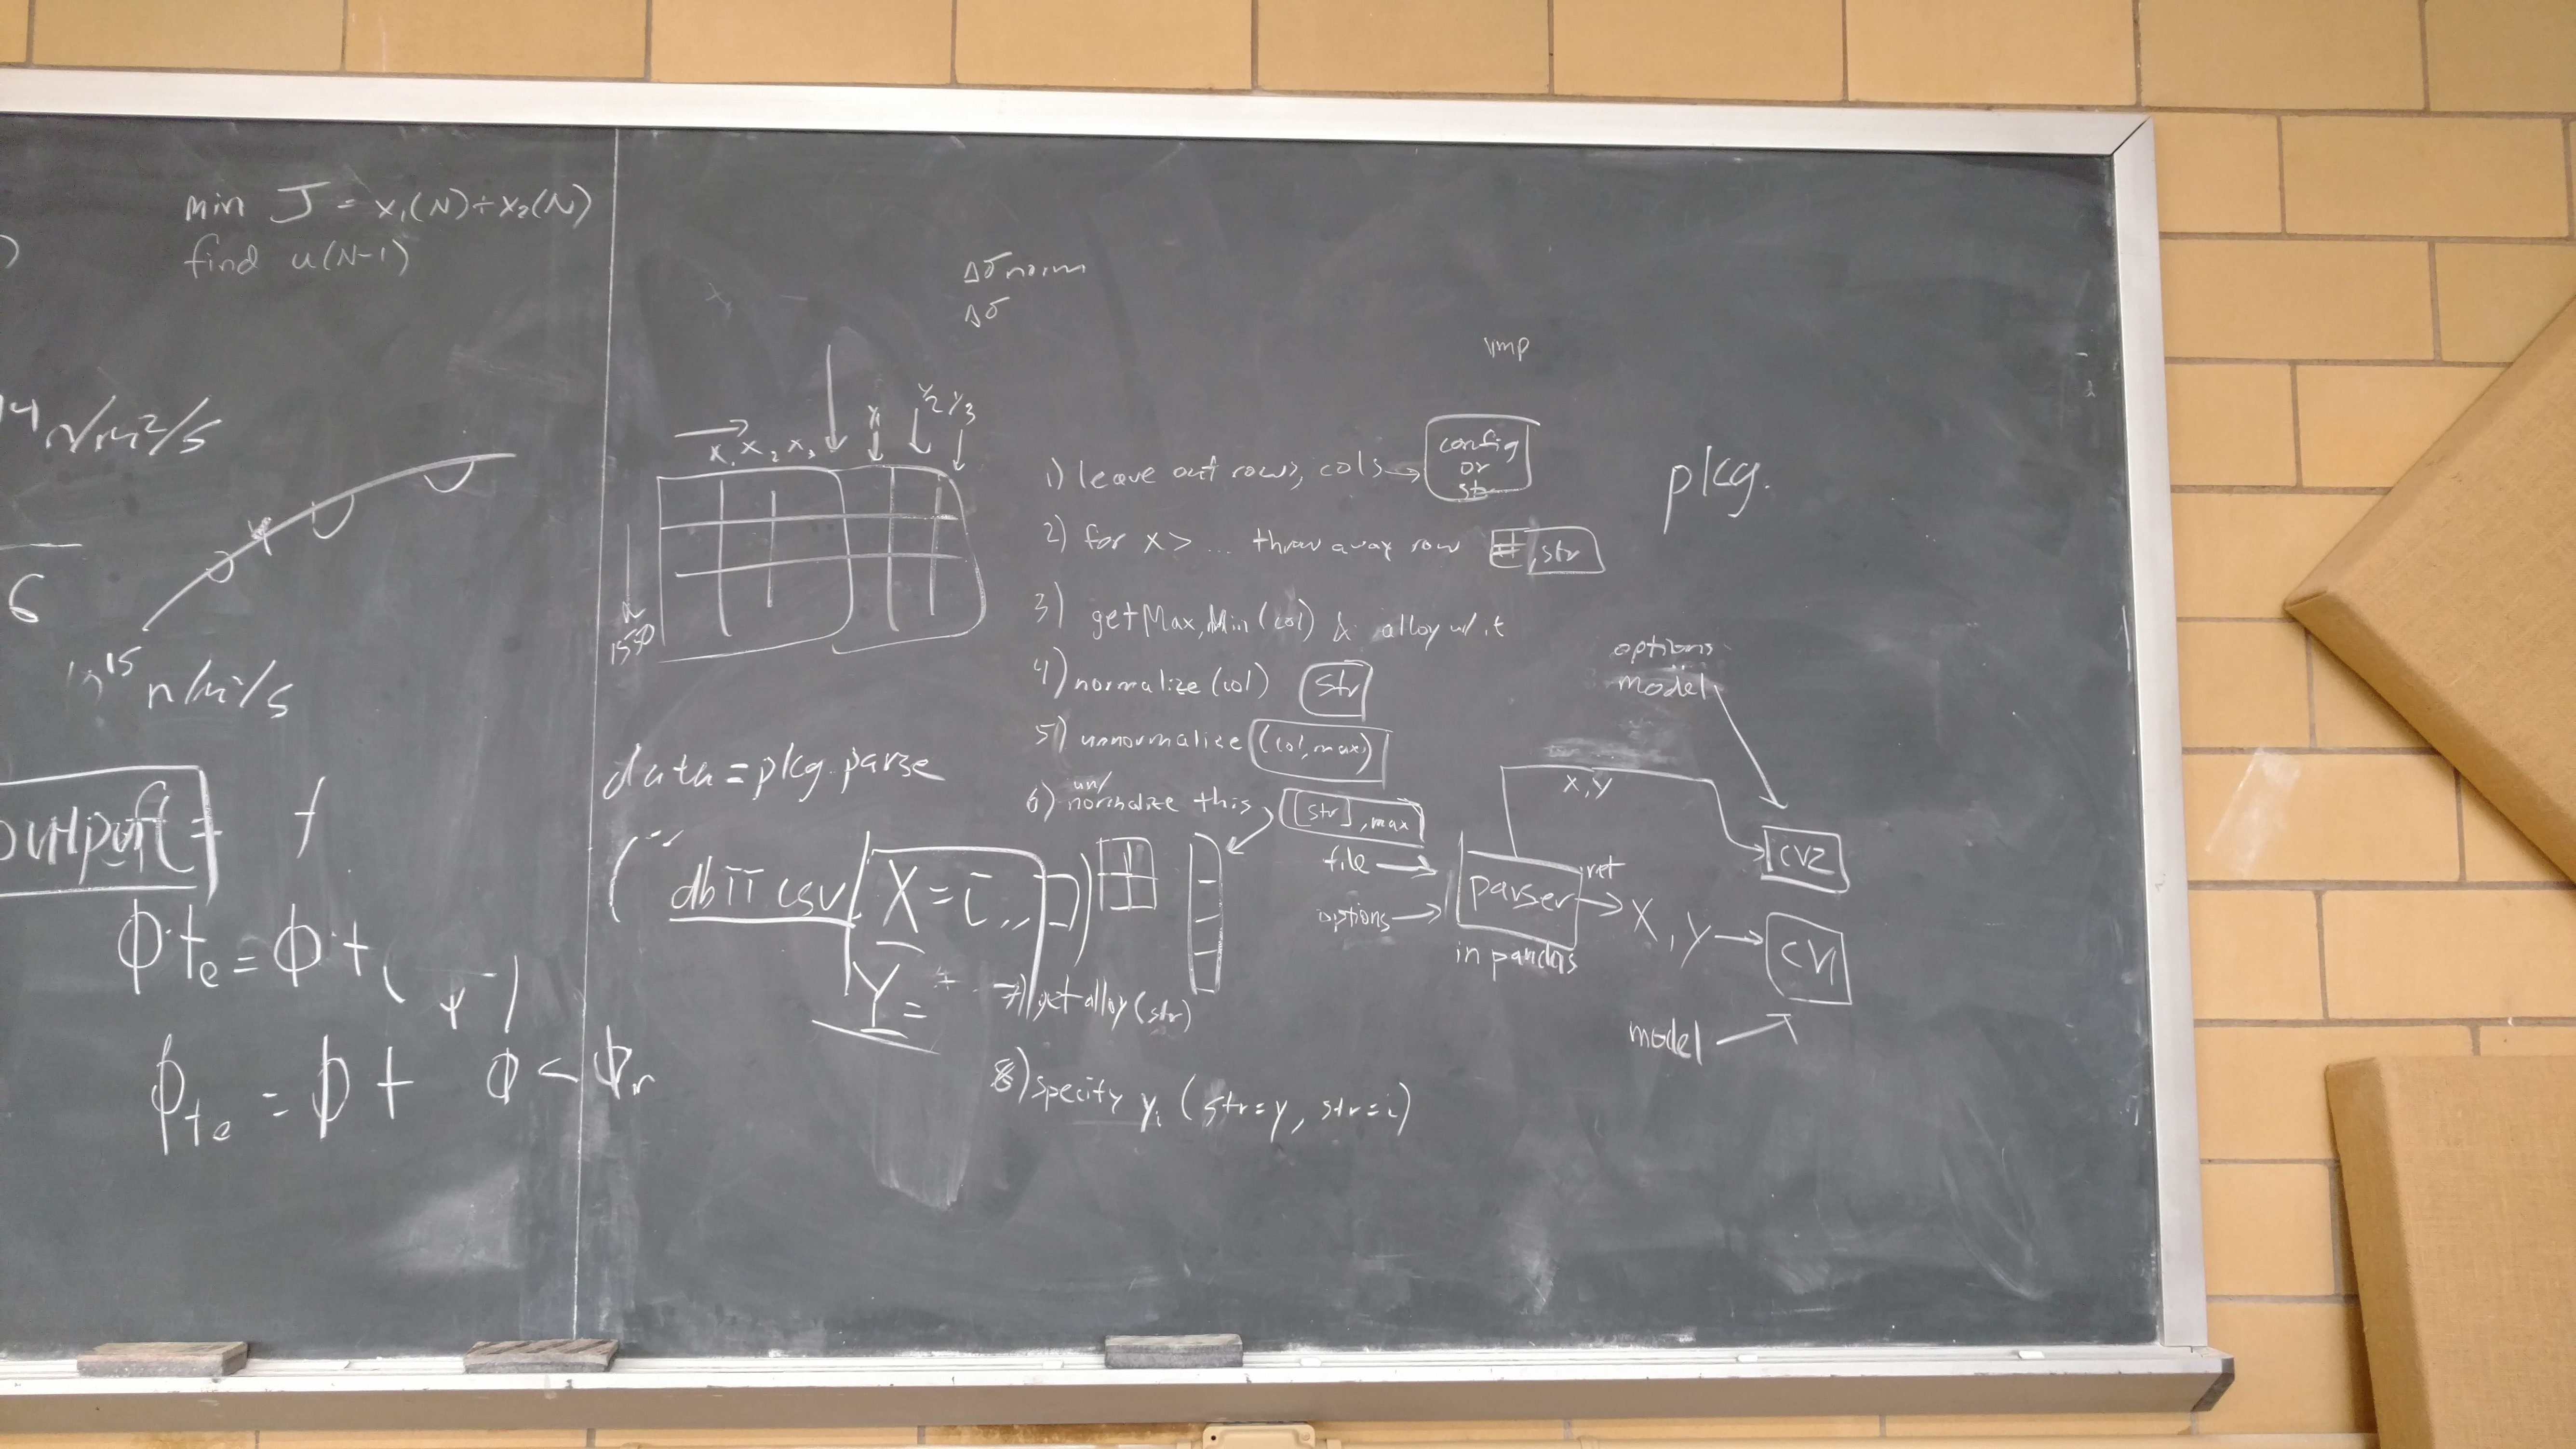 min J = x₁(N) + x₂(N)
find u(N-1)
n/m²/s
6
10¹⁵ n/m²/s
output =
ϕ·tₑ = ϕ·t
ϕtₑ = ϕ t ϕ <
Δσ norm
Δσ
x₁ x₂ x₃ y₁ y₂ y₃
1550
imp
1) leave out rows, cols → config or str
2) for x > ... throw away row #, str
3) getMax, Min (col) & alloy w/ it
4) normalize (col) str
5) unnormalize (col, max)
6) un/normalize this [str], max
7) get alloy (str)
8) specify yᵢ (str=y, str=i)
data = pkg.parse
dbTT csv X = [
Y =
pkg.
options
model
X, Y
CV2
file →
options →
parser
ret
in pandas
X, Y →
CV1
model